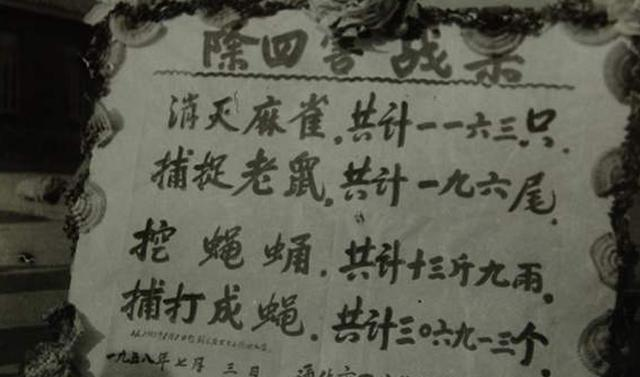 除四害战示
消灭麻雀.共计一一六三只.
捕捉老鼠.共计一九六尾.
挖蝇蛹.共计十三斤九兩.
捕打成蝇.共计三〇六九一三个.
一九五八年七月三日